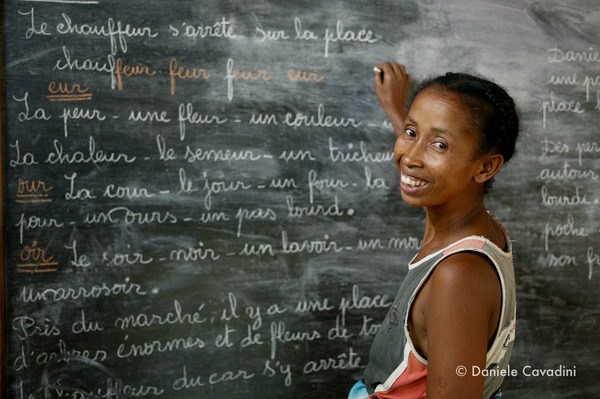 Le chauffeur s'arrête sur la place
chauffeur feur feur eur
eur
La peur - une fleur - un couleur -
La chaleur - le semeur - un tricheu
our La cour - le jour - un four - la
pour - un ours - un pas lourd.
oir Le soir - noir - un lavoir - un m
un arrosoir.
Près du marché, il y a une place
d'arbres énormes et de fleurs de to
du car s'y arrête
Daniel
place
autour
lourd
poche
son fr
© Daniele Cavadini